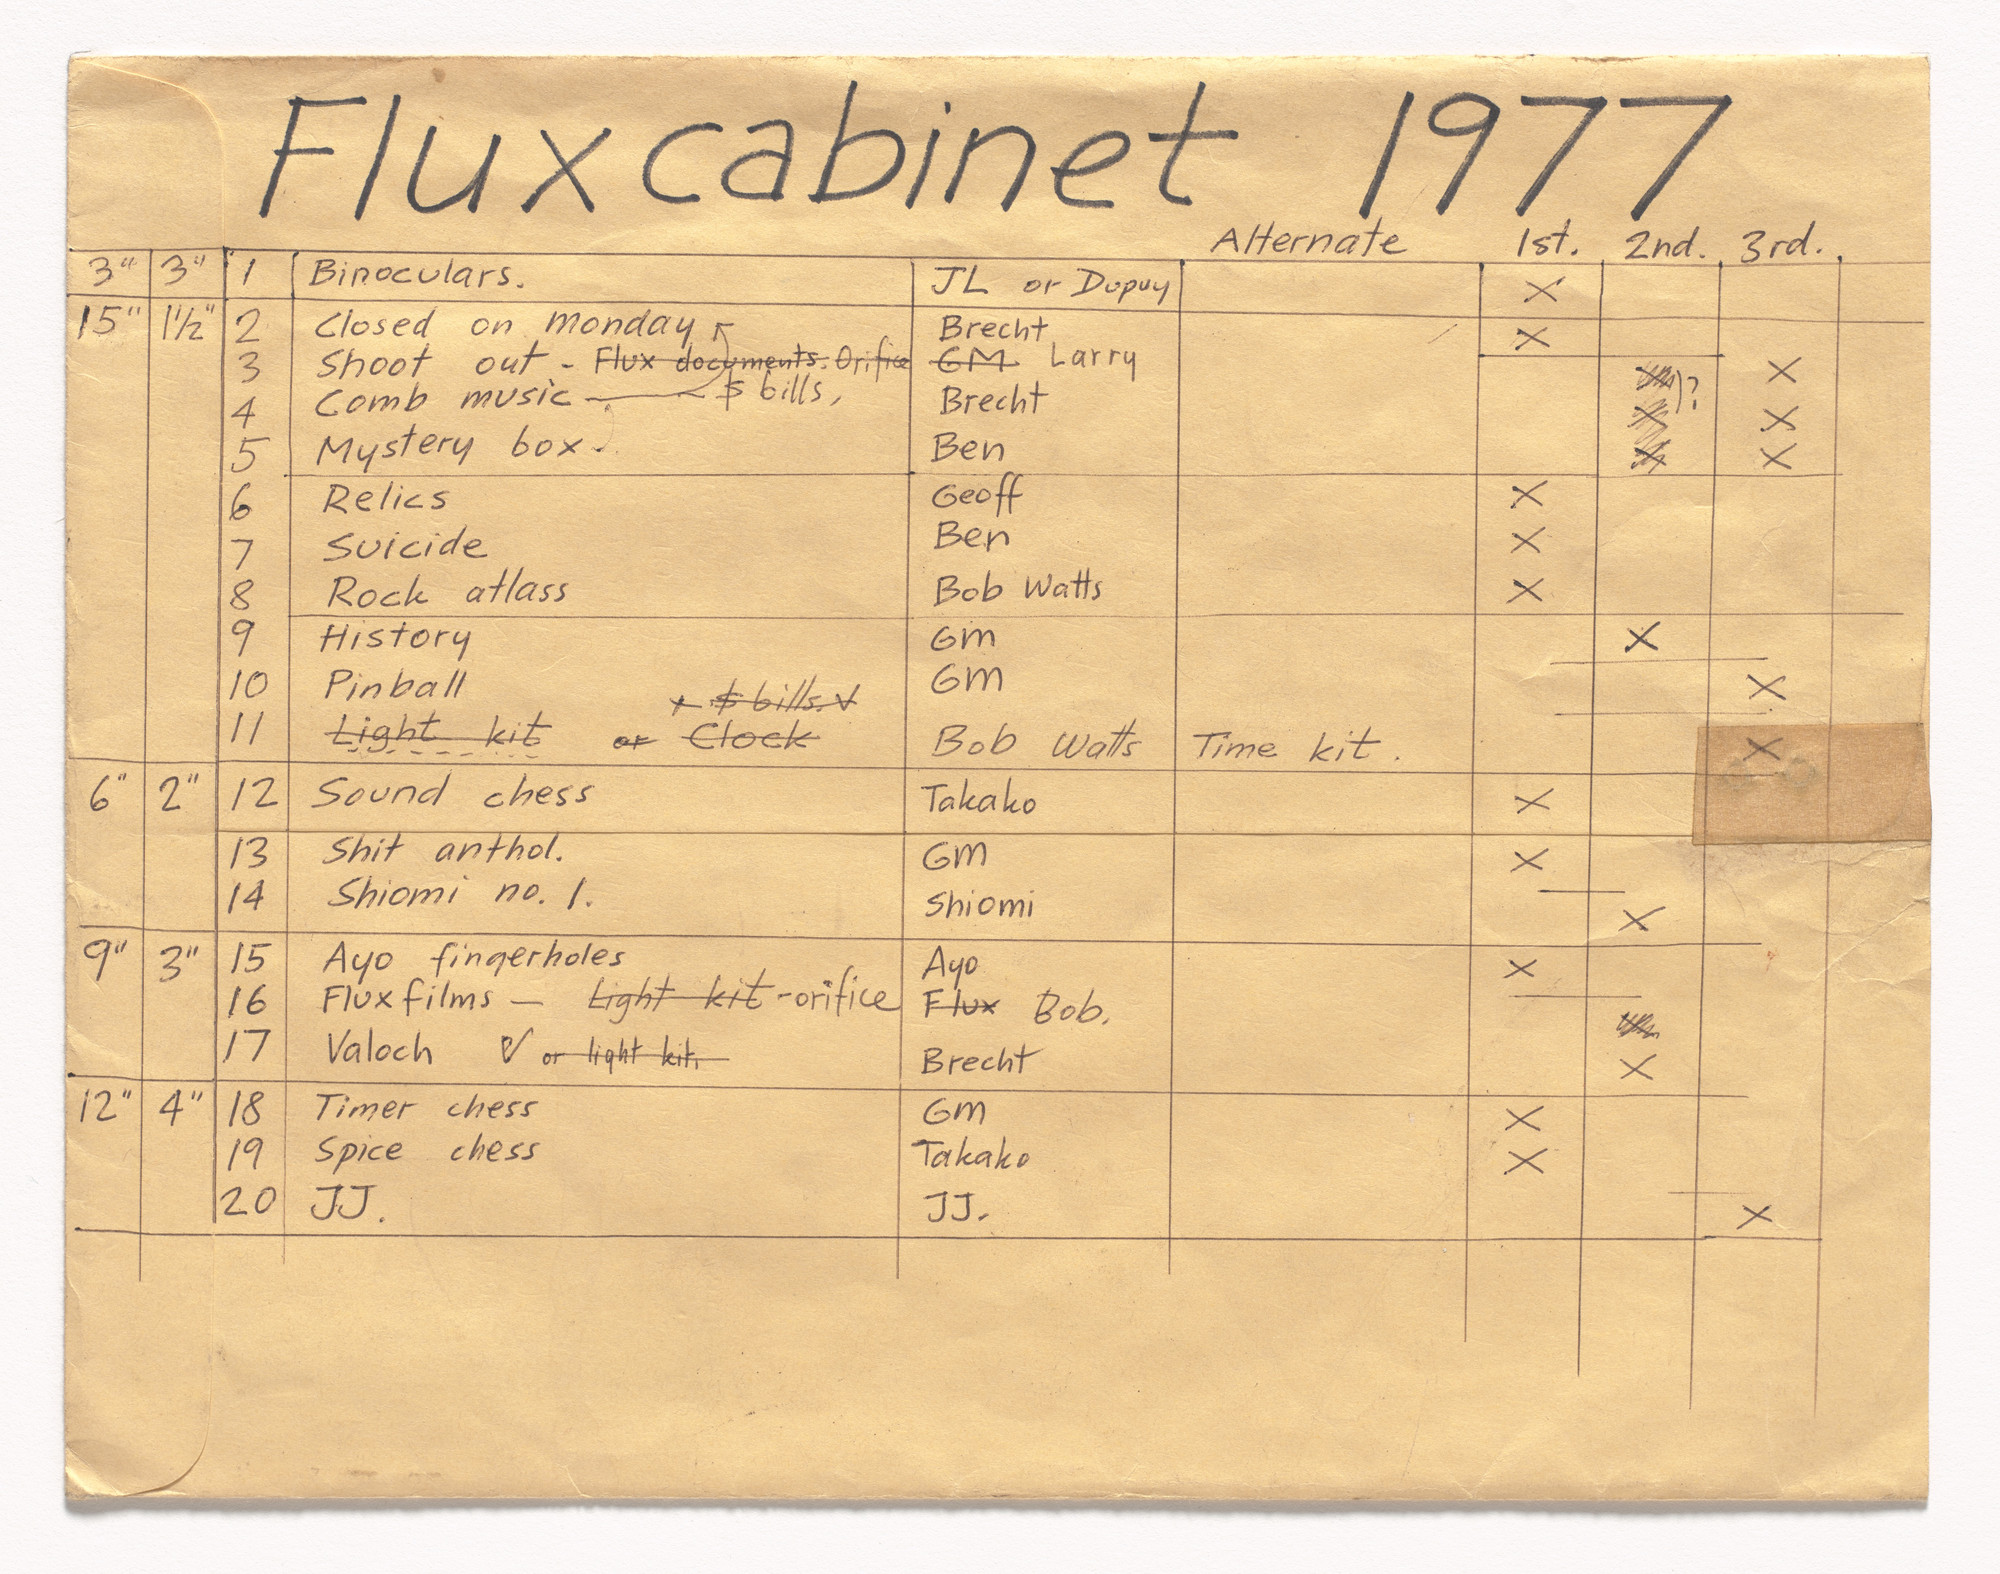 Fluxcabinet 1977
Alternate 1st. 2nd. 3rd.
3" 3" 1 Binoculars. JL or Dupuy X
15" 1½" 2 Closed on monday Brecht X
3 Shoot out - Flux documents. Orifice GM Larry X
4 Comb music $ bills, Brecht X ? X
5 Mystery box. Ben X X
6 Relics Geoff X
7 Suicide Ben X
8 Rock atlass Bob Watts X
9 History GM X
10 Pinball GM X
$ bills. V
11 Light kit or Clock Bob Watts Time kit. X
6" 2" 12 Sound chess Takako X
13 Shit anthol. GM X
14 Shiomi no. 1. Shiomi X
9" 3" 15 Ayo fingerholes Ayo X
16 Fluxfilms — Light kit - orifice Flux Bob.
17 Valoch or light kit. Brecht X
12" 4" 18 Timer chess GM X
19 Spice chess Takako X
20 JJ. JJ. X